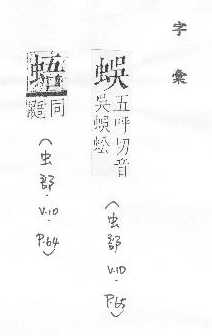 字彙
蜈
五呼切音
吳蜈蚣
(虫部.V.10.P.65)
蜈
同
(虫部.V.10.P.64)